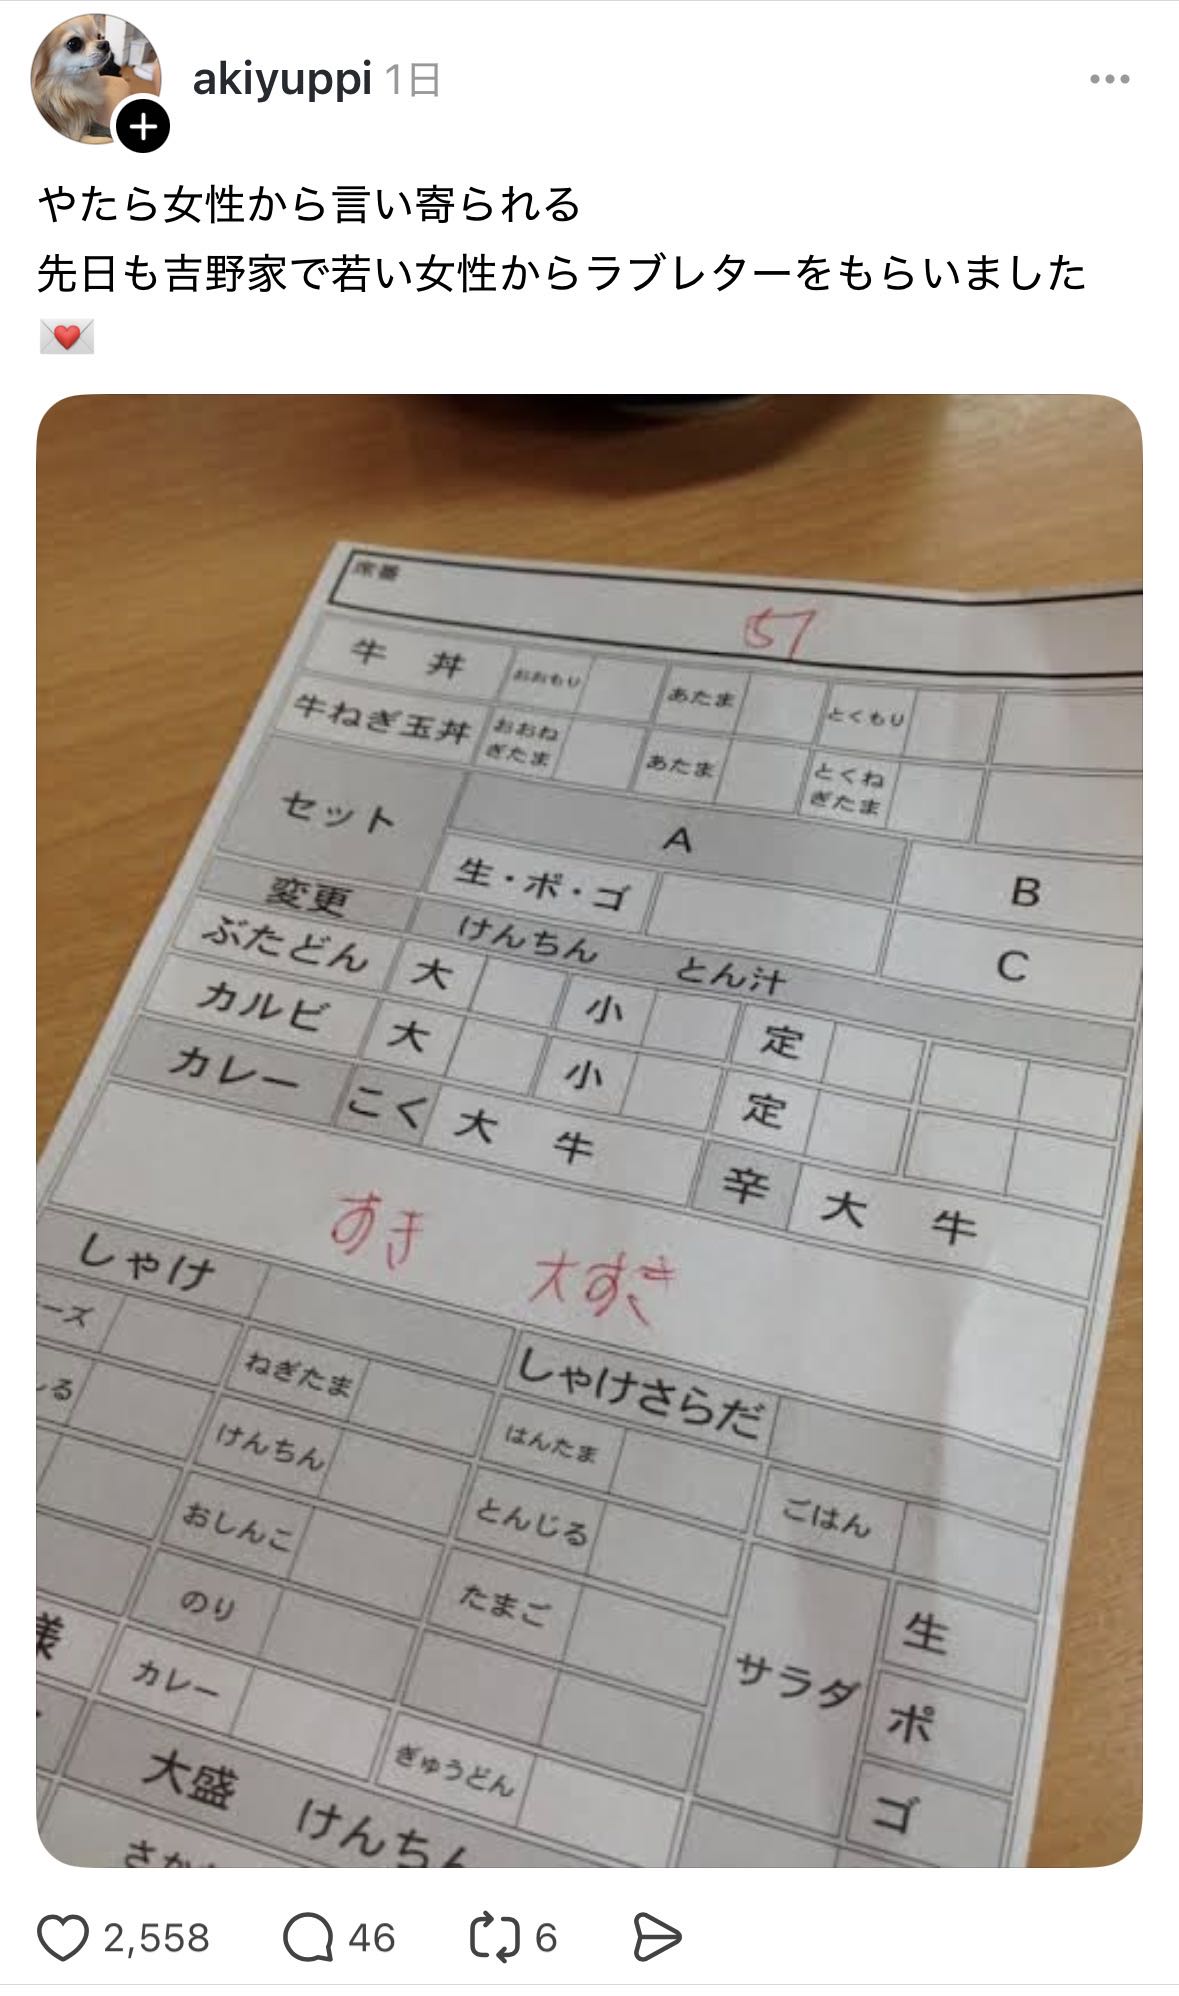 akiyuppi 1日
やたら女性から言い寄られる
先日も吉野家で若い女性からラブレターをもらいました
💌
席番
57
牛 丼 おおもり あたま とくもり
牛ねぎ玉丼 おおねぎたま あたま とくねぎたま
セット A B
生・ポ・ゴ C
変更 けんちん とん汁
ぶたどん 大 小 定
カルビ 大 小 定
カレー こく 大 牛 辛 大 牛
すき 大すき
しゃけ しゃけさらだ
ーズ ねぎたま はんたま ごはん
る けんちん とんじる サラダ 生
おしんこ たまご ポ
のり ゴ
様 カレー ぎゅうどん
大盛 けんちん
さか
2,558 46 6